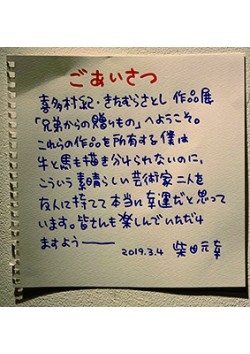 ごあいさつ
喜多村紀・きたむらさとし 作品展
「兄弟からの贈りもの」へようこそ。
これらの作品を所有する僕は
牛と馬も描き分けられないのに、
こういう素晴らしい芸術家二人を
友人に持てて本当に幸運だと思って
います。皆さんも楽しんでいただけ
ますよう——
2019.3.4 柴田元幸